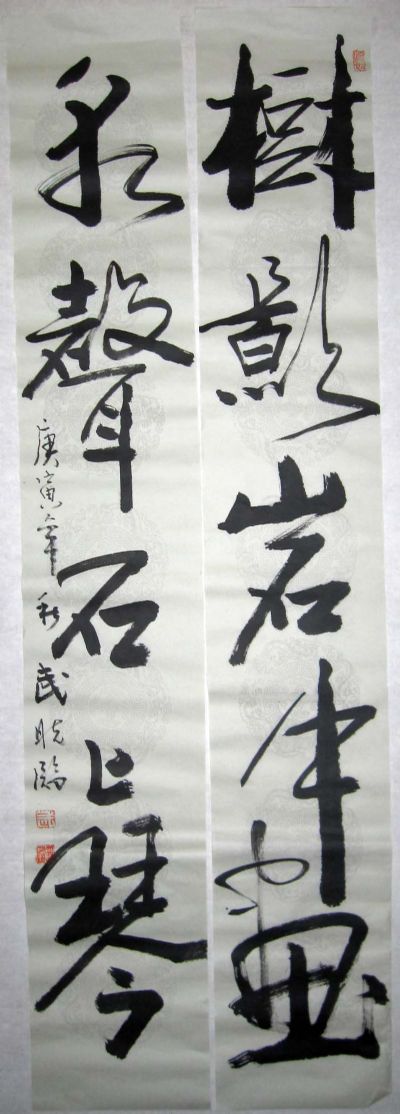 樹影岩中畫
泉聲石上琴
庚寅年秋武晓